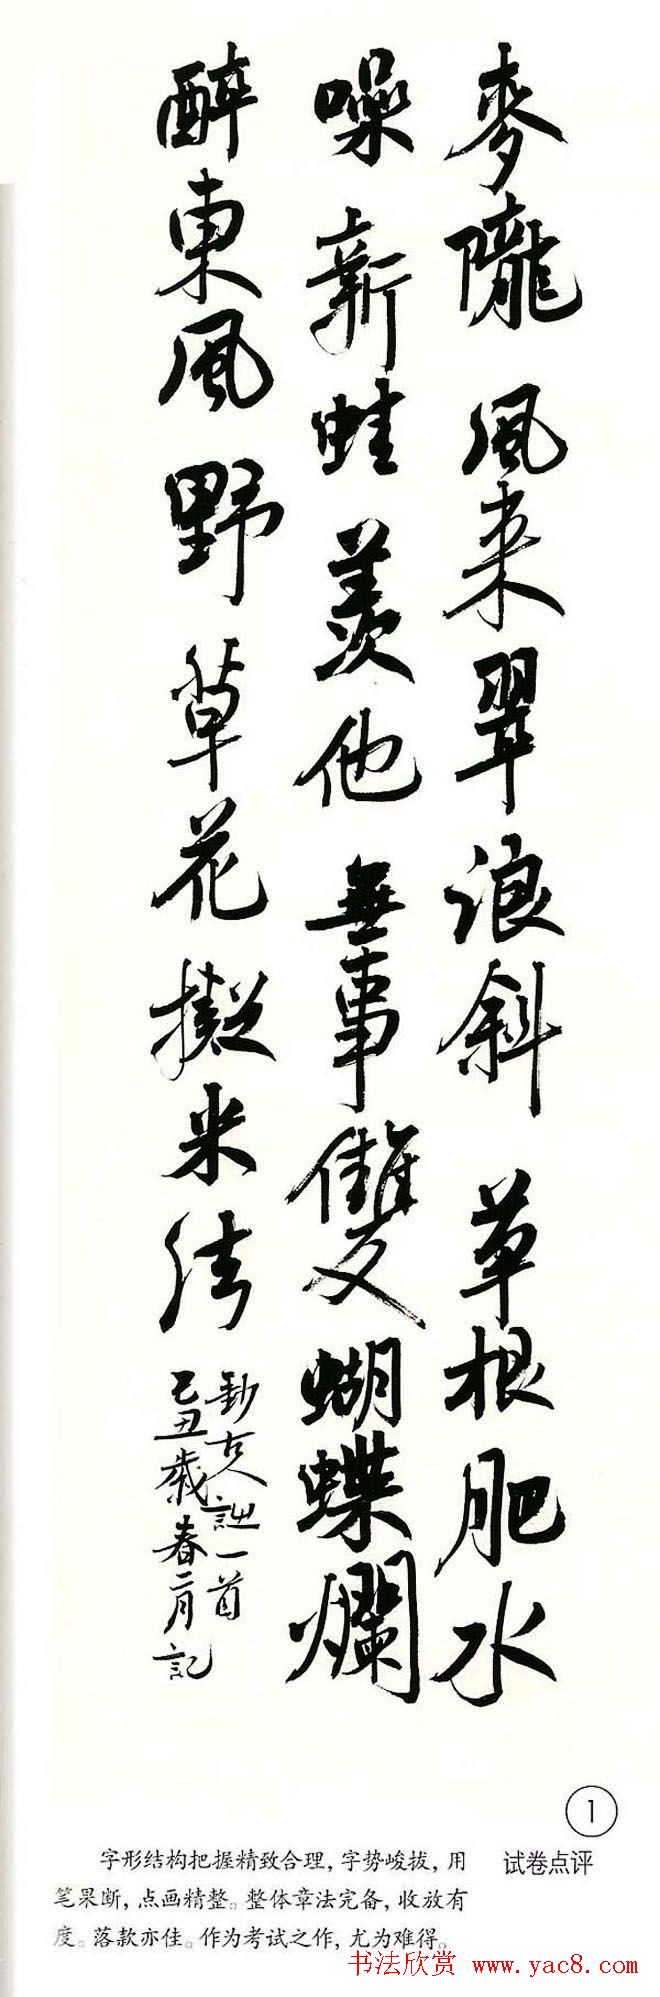 麥隴風来翠浪斜草根肥水
噪新蛙羨他無事雙蝴蝶爛
醉東風野草花擬米法
鈔古人詩一首
己丑歲春二月記
1
试卷点评
字形结构把握精致合理，字势峻拔，用
笔果断，点画精整。整体章法完备，收放有
度。落款亦佳。作为考试之作，尤为难得。
书法欣赏 www.yac8.com